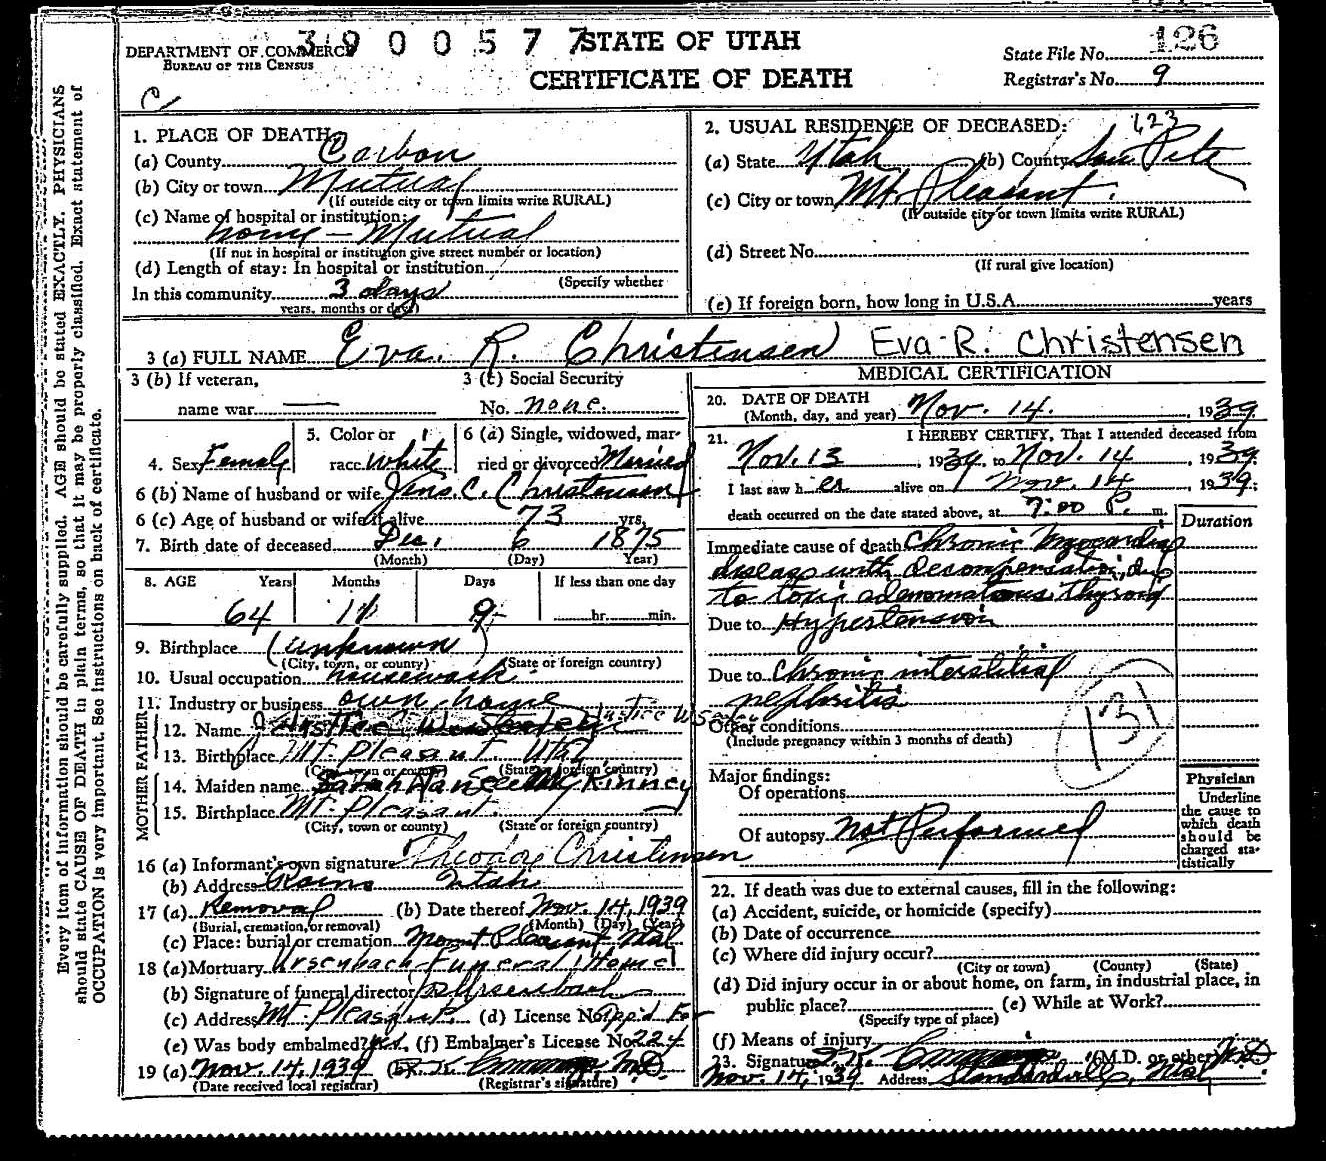 3900577
STATE OF UTAH
DEPARTMENT OF COMMERCE
BUREAU OF THE CENSUS
CERTIFICATE OF DEATH
State File No. 126
Registrar's No. 9
Every item of information should be carefully supplied. AGE should be stated EXACTLY. PHYSICIANS
should state CAUSE OF DEATH in plain terms, so that it may be properly classified. Exact statement of
OCCUPATION is very important. See instructions on back of certificate.
1. PLACE OF DEATH:
(a) County Carbon
(b) City or town Mutual
(If outside city or town limits write RURAL)
(c) Name of hospital or institution:
home - Mutual
(If not in hospital or institution give street number or location)
(d) Length of stay: In hospital or institution
(Specify whether
In this community 3 days
years, months or days)
2. USUAL RESIDENCE OF DECEASED: 123
(a) State Utah (b) County San Pete
(c) City or town Mt. Pleasant.
(If outside city or town limits write RURAL)
(d) Street No.
(If rural give location)
(e) If foreign born, how long in U.S.A. years
3 (a) FULL NAME Eva. R. Christensen Eva R. Christensen
3 (b) If veteran,
name war
3 (c) Social Security
No. none.
4. Sex Female
5. Color or
race White
6 (a) Single, widowed, mar-
ried or divorced Married
6 (b) Name of husband or wife Jens. C. Christensen
6 (c) Age of husband or wife if alive 73 yrs.
7. Birth date of deceased Dec. 6 1875
(Month) (Day) Year)
8. AGE Years Months Days If less than one day
64 11 9 hr. min.
9. Birthplace (unknown)
(City, town, or county) (State or foreign country)
10. Usual occupation housework
11. Industry or business own home
FATHER
12. Name Justice
13. Birthplace Mt. Pleasant. Utah
(City, town or county) (State or foreign country)
MOTHER
14. Maiden name Sarah McKinney
15. Birthplace Mt. Pleasant.
(City, town or county) (State or foreign country)
16 (a) Informant's own signature Theodore Christensen
(b) Address Rains Utah
17 (a) Removal (b) Date thereof Nov. 14, 1939
(Burial, cremation, or removal) (Month) (Day) (Year)
(c) Place: burial or cremation Mount Pleasant Utah
18 (a) Mortuary Ursenbach Funeral Home
(b) Signature of funeral director Ursenbach
(c) Address Mt. Pleasant. (d) License No. App'd For
(e) Was body embalmed? yes. (f) Embalmer's License No. 224
19 (a) Nov. 14, 1939 (b) M.D.
(Date received local registrar) (Registrar's signature)
MEDICAL CERTIFICATION
20. DATE OF DEATH
(Month, day, and year) Nov. 14. , 1939
21. I HEREBY CERTIFY, That I attended deceased from
Nov. 13 , 1939, to Nov. 14 , 1939
I last saw her alive on Nov. 14 , 1939;
death occurred on the date stated above, at 7:00 P. m.
Duration
Immediate cause of death Chronic Myocardial
disease with decompensation, due
to toxic adenomatous thyroid
Due to Hypertension
Due to Chronic interstitial
nephritis
131
Other conditions
(Include pregnancy within 3 months of death)
Major findings:
Of operations
Of autopsy Not Performed
Physician
Underline
the cause to
which death
should be
charged sta-
tistically
22. If death was due to external causes, fill in the following:
(a) Accident, suicide, or homicide (specify)
(b) Date of occurrence
(c) Where did injury occur?
(City or town) (County) (State)
(d) Did injury occur in or about home, on farm, in industrial place, in
public place? (e) While at Work?
(Specify type of place)
(f) Means of injury
23. Signature (M.D. or other) M.D.
Nov. 14, 1939 Address Standardville, Utah